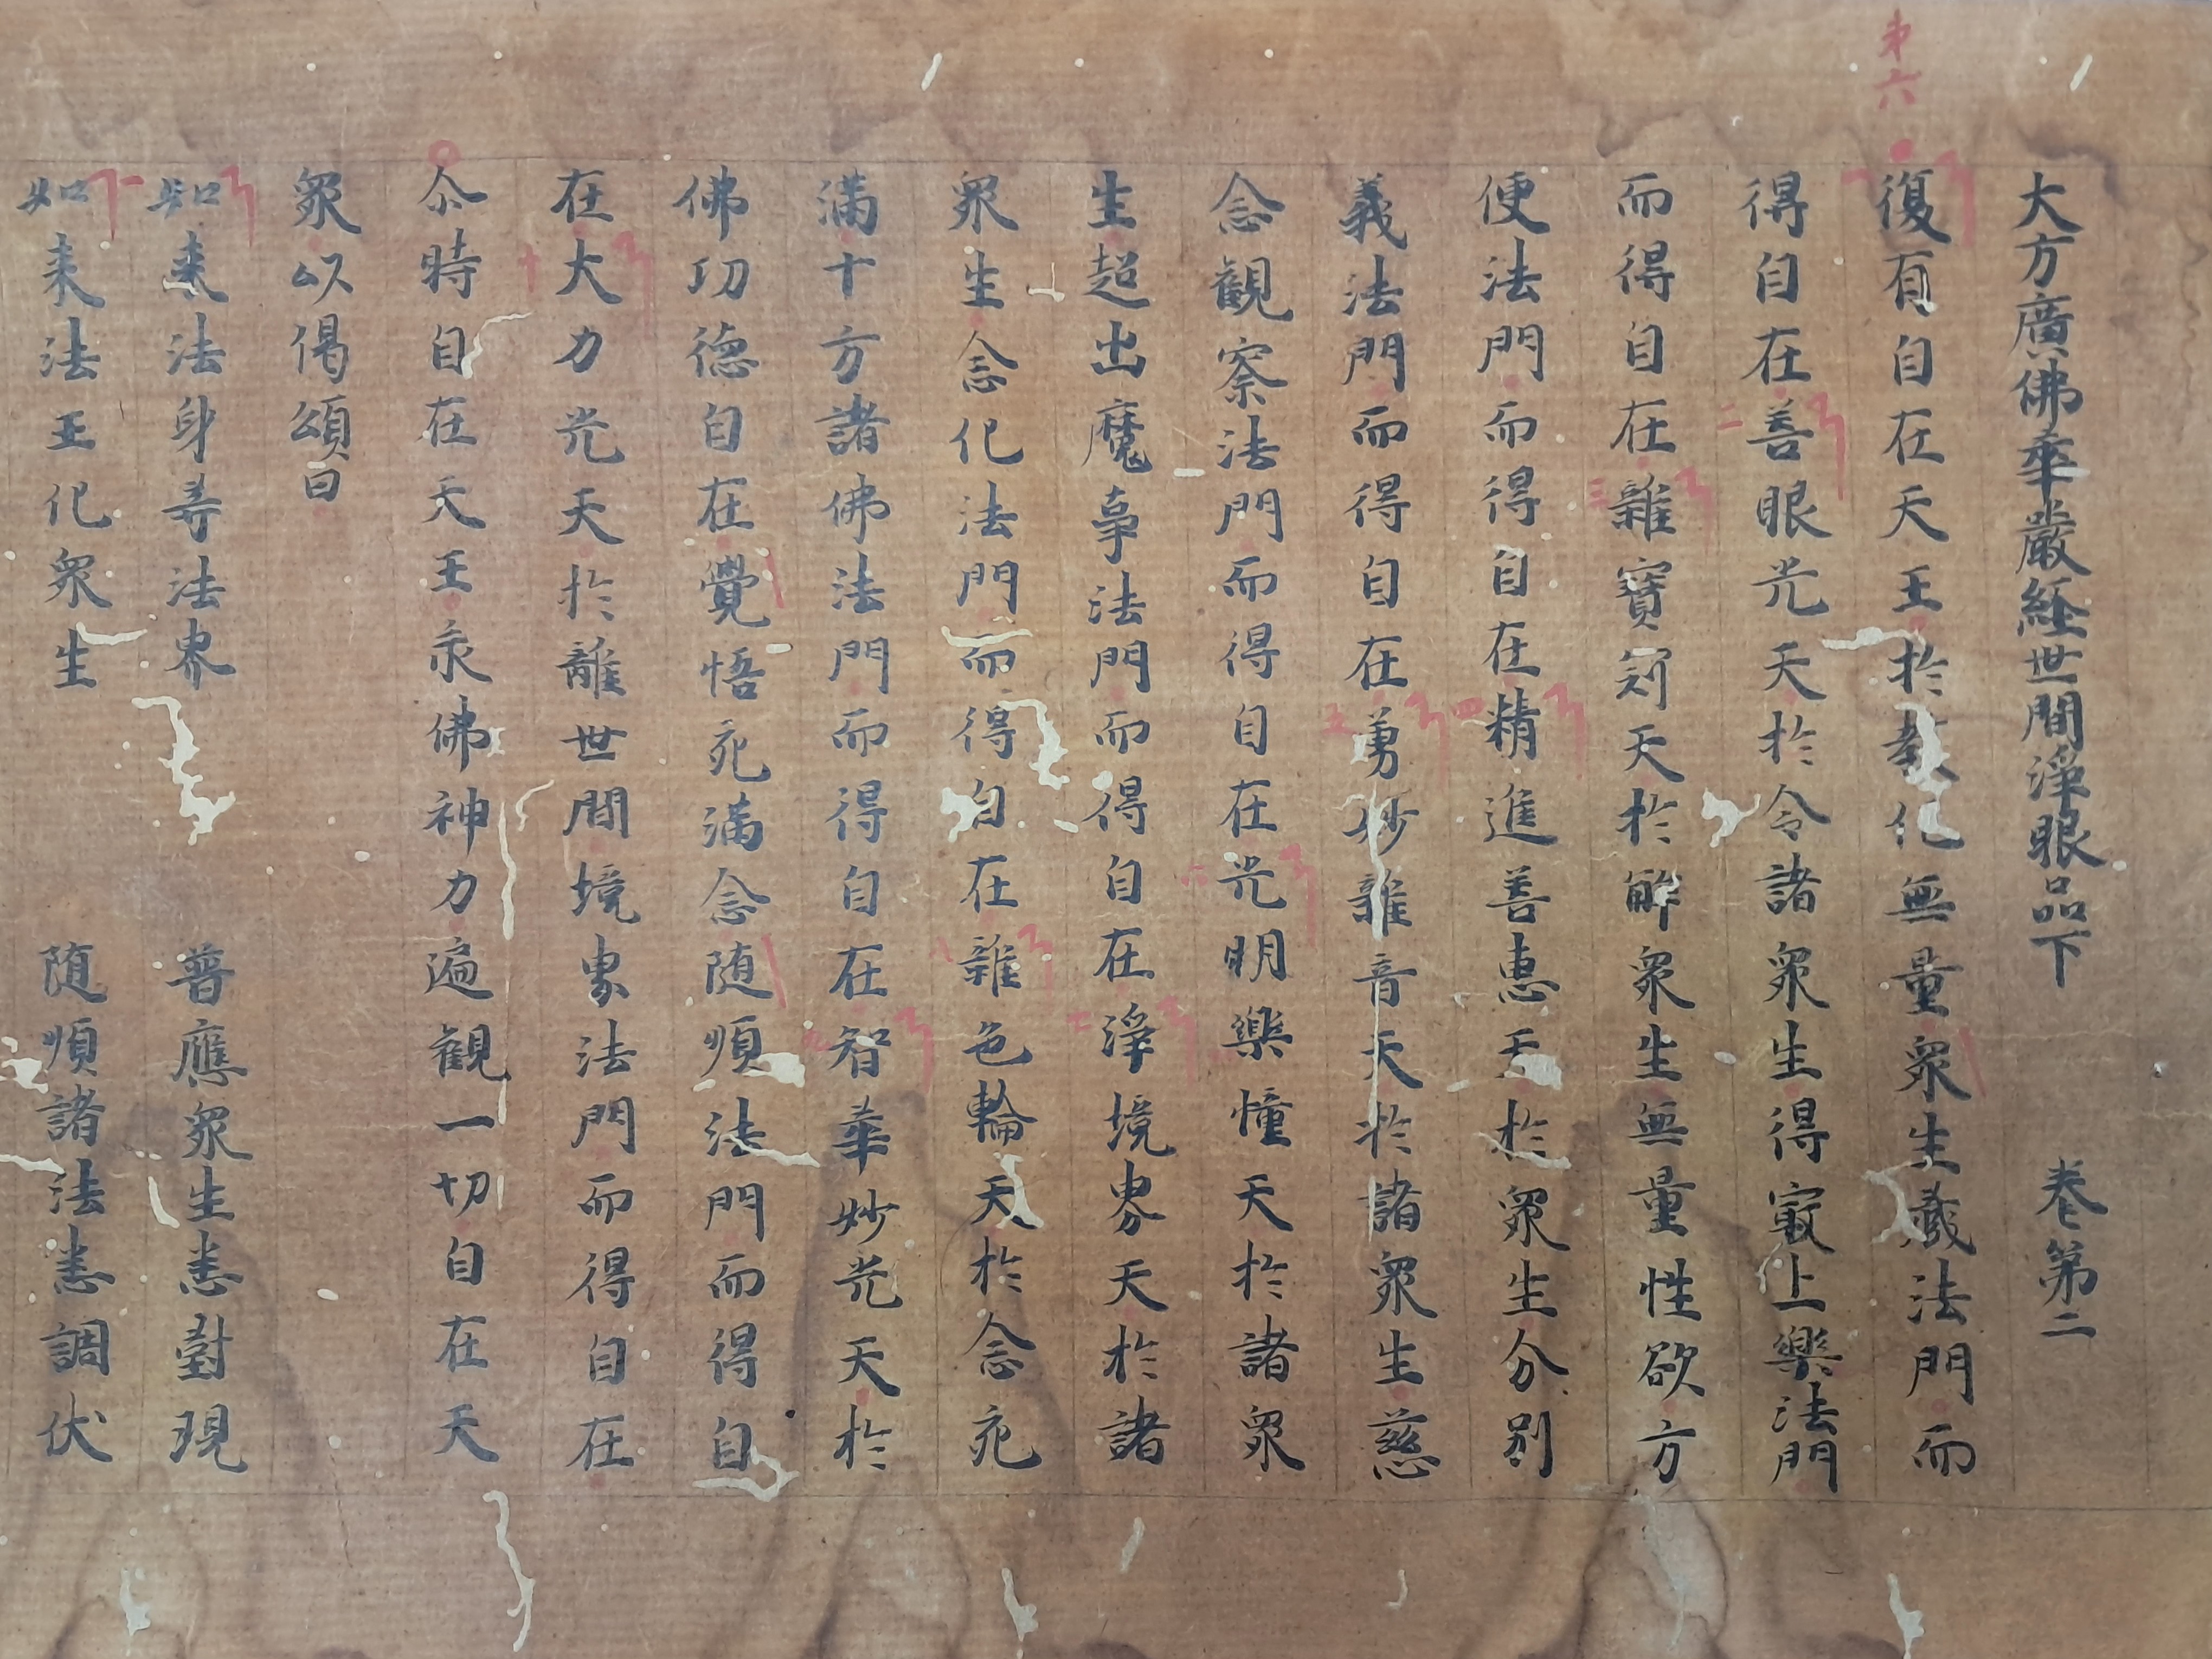 大方廣佛華嚴経世間淨眼品下 巻第二
第六
復有自在天王於教化無量衆生藏法門而
得自在善眼光天於令諸衆生得冣上樂法門
而得自在雜寶㓚天於解衆生無量性欲方
便法門而得自在精進善惠天於衆生分别
義法門而得自在勇妙雜音天於諸衆生慈
念観察法門而得自在光明樂憧天於諸衆
生超出魔事法門而得自在淨境界天於諸
衆生念化法門而得自在雜色輪天於念充
滿十方諸佛法門而得自在智華妙光天於
佛功德自在覺悟充滿念随順法門而得自
在大力光天於離世間境界法門而得自在
尒時自在天王承佛神力遍観一切自在天
衆以偈頌曰
如来法身等法界 普應衆生悉對現
如来法王化衆生 随順諸法悉調伏